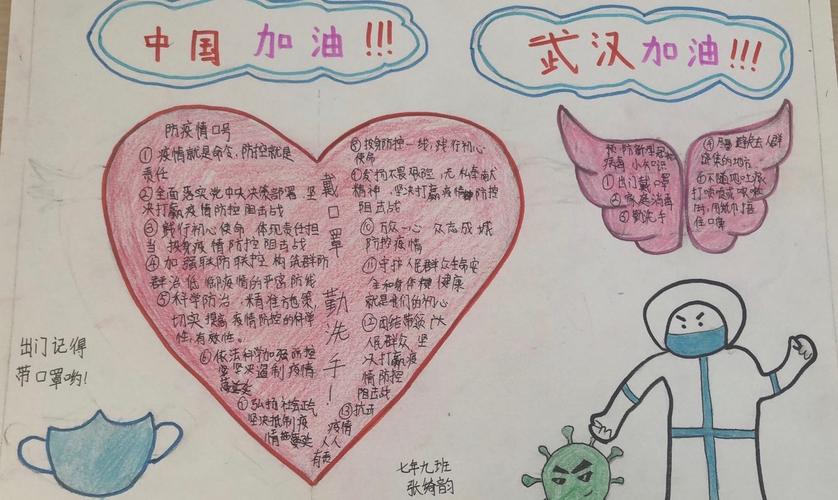 中国 加油!!!
武汉加油!!!
防疫情口号
① 疫情就是命令,防控就是
责任
② 全面落实党中央决策部署,坚
决打赢疫情防控阻击战
③ 践行初心使命 体现责任担
当 投身疫情防控阻击战
④ 加强联防联控 构筑群防
群治 抵御疫情的严密防线
⑤ 科学防治,精准施策,
切实提高疫情防控的科学
性,有效性。
⑥ 依法科学加强防控
坚决遏制疫情
⑦ 弘扬社会正气
坚决抵制疫
情
戴口罩 勤洗手
⑧ 投身防控一线,践行初心
使命
⑨ 发扬不畏艰险,无私奉献
精神,坚决打赢疫情防控
阻击战
⑩ 万众一心 众志成城
防控疫情
⑪ 守护人民群众生命安
全和身体健康
就是我们的初心
⑫ 团结带领广大
人民群众,坚
决打赢疫
情防控
阻击战
⑬ 抗击
疫情
人人
有责
预防新型冠状
病毒 小知识
① 出门戴口罩
② 家庭消毒
③ 勤洗手
④ 避免去人群
密集的地方
⑤ 不随地吐痰
打喷嚏或咳嗽
时,用纸巾捂
住口鼻
出门记得
带口罩哟!
七年九班
张绮韵